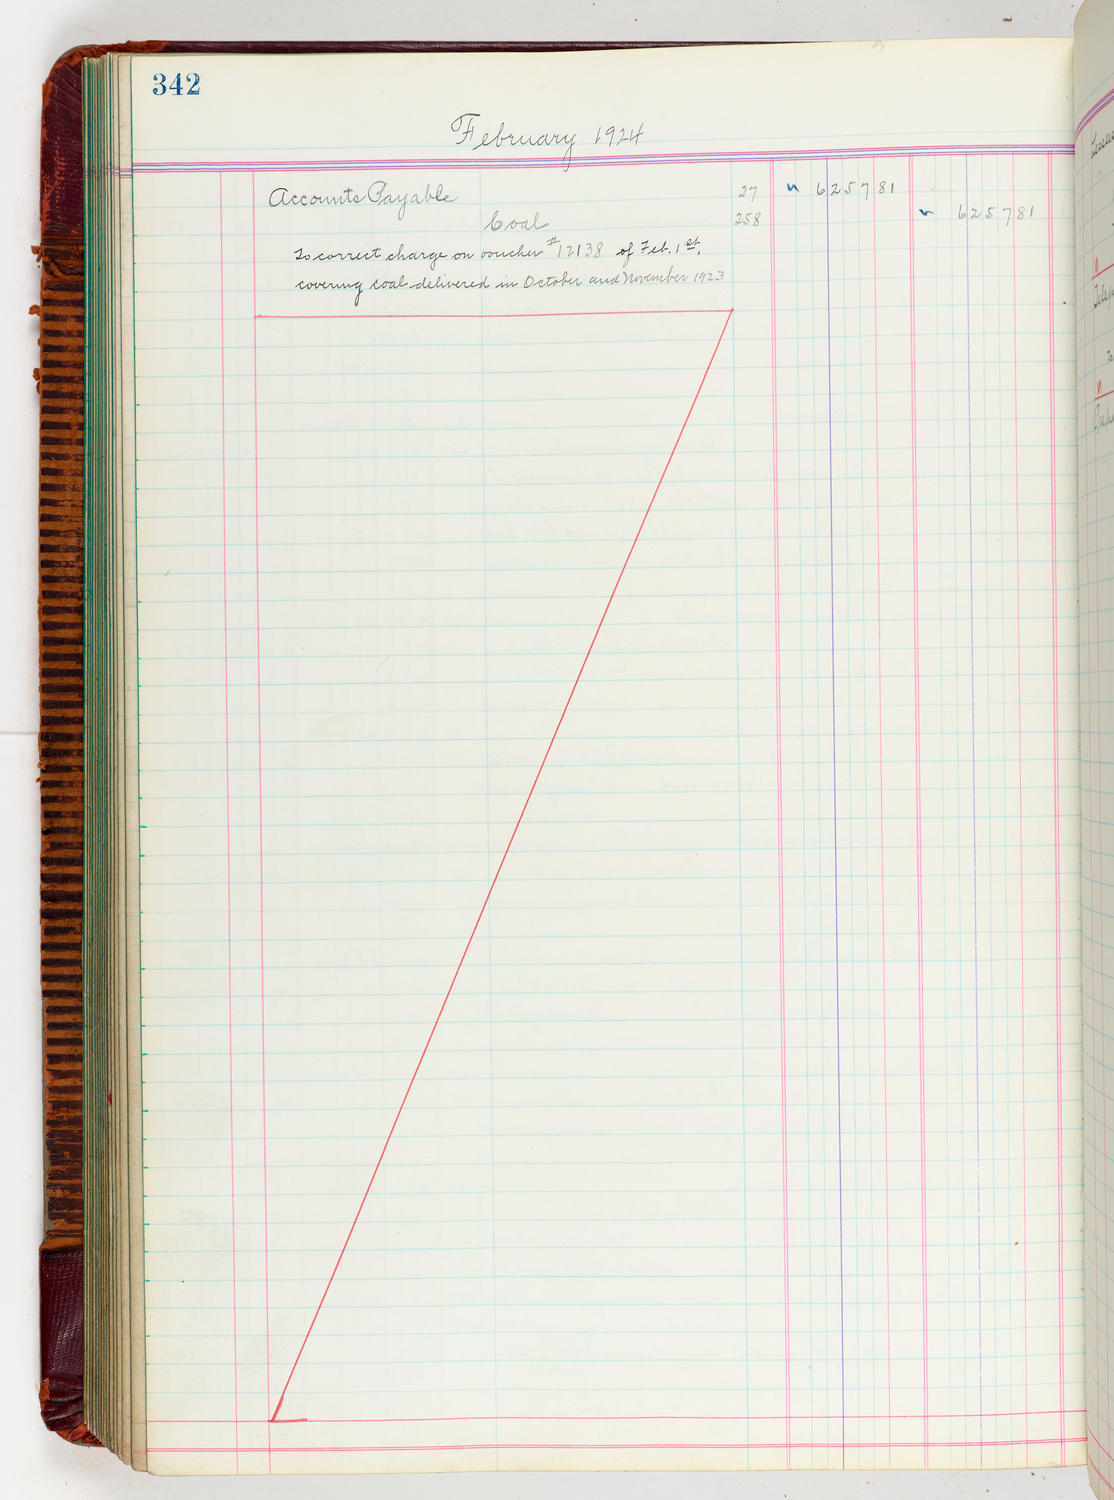 342
February 1924
Accounts Payable 27 6257 81
Coal 258 6257 81
To correct charge on voucher #12138 of Feb. 1st,
covering coal delivered in October and November 1923